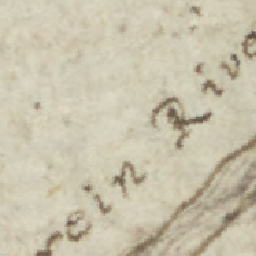 rein Rive